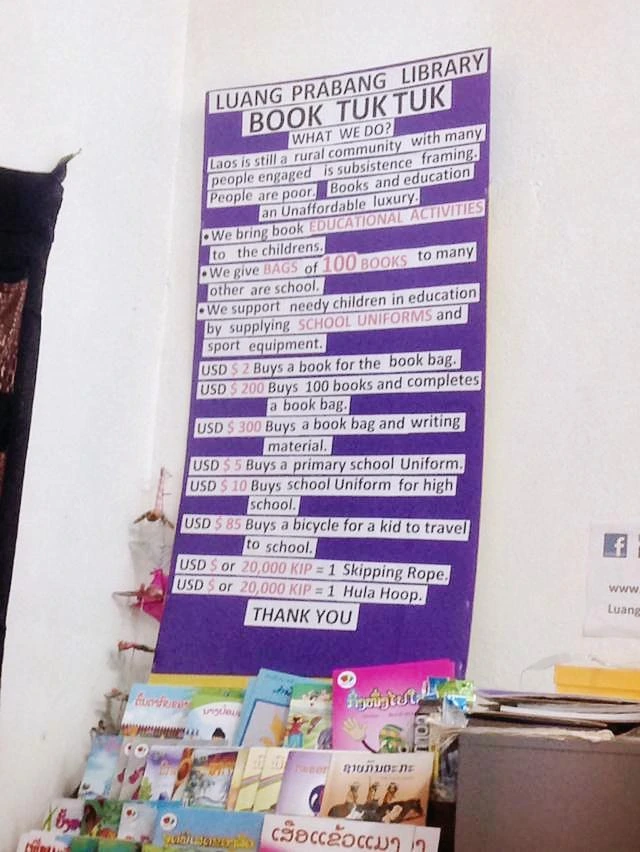 LUANG PRABANG LIBRARY
BOOK TUK TUK
WHAT WE DO?
Laos is still a rural community with many
people engaged is subsistence framing.
People are poor. Books and education
an Unaffordable luxury.
•We bring book EDUCATIONAL ACTIVITIES
to the childrens.
•We give BAGS of 100 BOOKS to many
other are school.
•We support needy children in education
by supplying SCHOOL UNIFORMS and
sport equipment.
USD $ 2 Buys a book for the book bag.
USD $ 200 Buys 100 books and completes
a book bag.
USD $ 300 Buys a book bag and writing
material.
USD $ 5 Buys a primary school Uniform.
USD $ 10 Buys school Uniform for high
school.
USD $ 85 Buys a bicycle for a kid to travel
to school.
USD $ or 20,000 KIP = 1 Skipping Rope.
USD $ or 20,000 KIP = 1 Hula Hoop.
THANK YOU
f
www.
Luang
ເສືອແຂ້ວແມງ